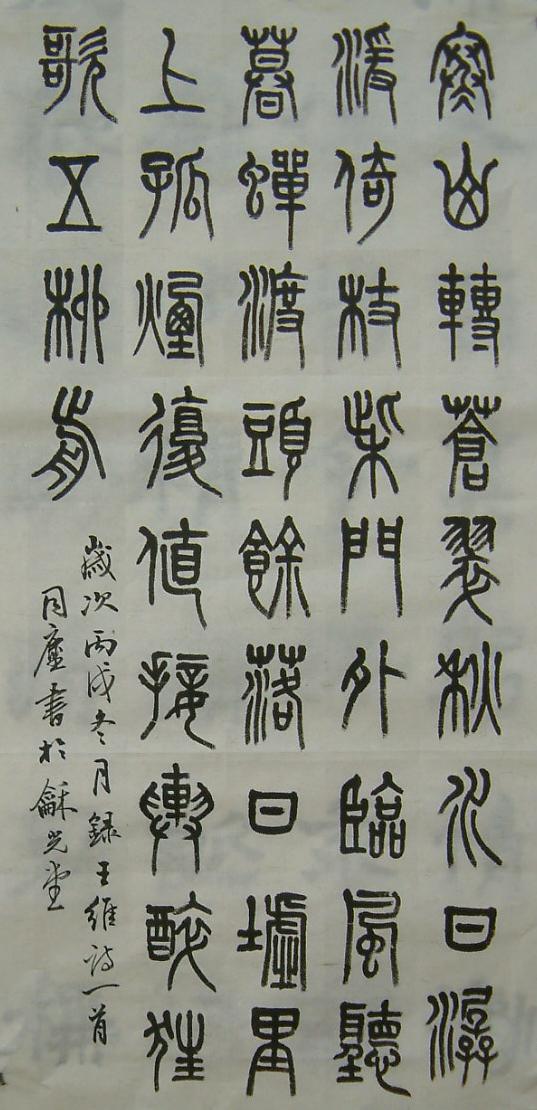 寒山轉蒼翠秋水日潺
湲倚杖柴門外臨風聽
暮蟬渡頭餘落日墟里
上孤煙復值接輿醉狂
歌五柳前
歲次丙戌冬月錄王維詩一首
同塵書於龢光堂